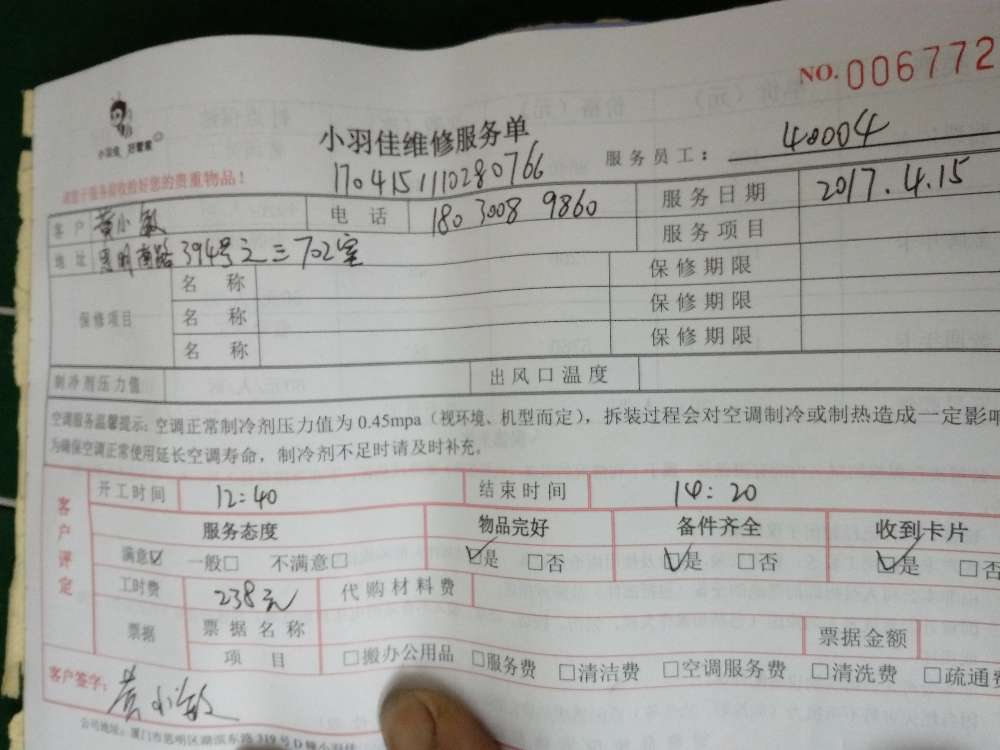 NO. 006772
小羽佳 好管家
小羽佳维修服务单
服务员工： 40004
170415111028 0766
请您于服务前收拾好您的贵重物品！
客户 黄小敏 电话 180 3008 9860 服务日期 2017.4.15
地址 思明南路394号之三702室 服务项目
保修项目 名称 保修期限
名称 保修期限
名称 保修期限
制冷剂压力值 出风口温度
空调服务温馨提示：空调正常制冷剂压力值为0.45mpa（视环境、机型而定），拆装过程会对空调制冷或制热造成一定影响
为确保空调正常使用延长空调寿命，制冷剂不足时请及时补充。
客户评定
开工时间 12:40 结束时间 14:20
服务态度 物品完好 备件齐全 收到卡片
满意☑ 一般□ 不满意□ ☑是 □否 ☑是 □否 ☑是 □否
工时费 238元 代购材料费
票据 票据名称 票据金额
项目 □搬办公用品 □服务费 □清洁费 □空调服务费 □清洗费 □疏通费
客户签字： 黄小敏
公司地址：厦门市思明区湖滨东路319号D幢小羽佳